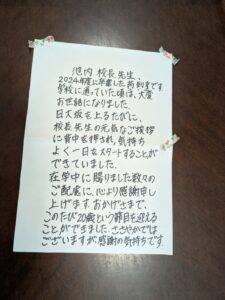 池内 校長先生、
2024年度に卒業した です
学校に通っていた頃は、大変
お世話になりました。
日大坂を上るたびに、
校長先生の元気なご挨拶
に背中を押され、気持ち
よく一日をスタートすることが
できていました。
在学中に賜りました数々の
ご配慮に、心より感謝申し
上げます。おかげさまで、
このたび20歳という節目を迎える
ことができました。ささやかでは
ございますが、感謝の気持ちです。